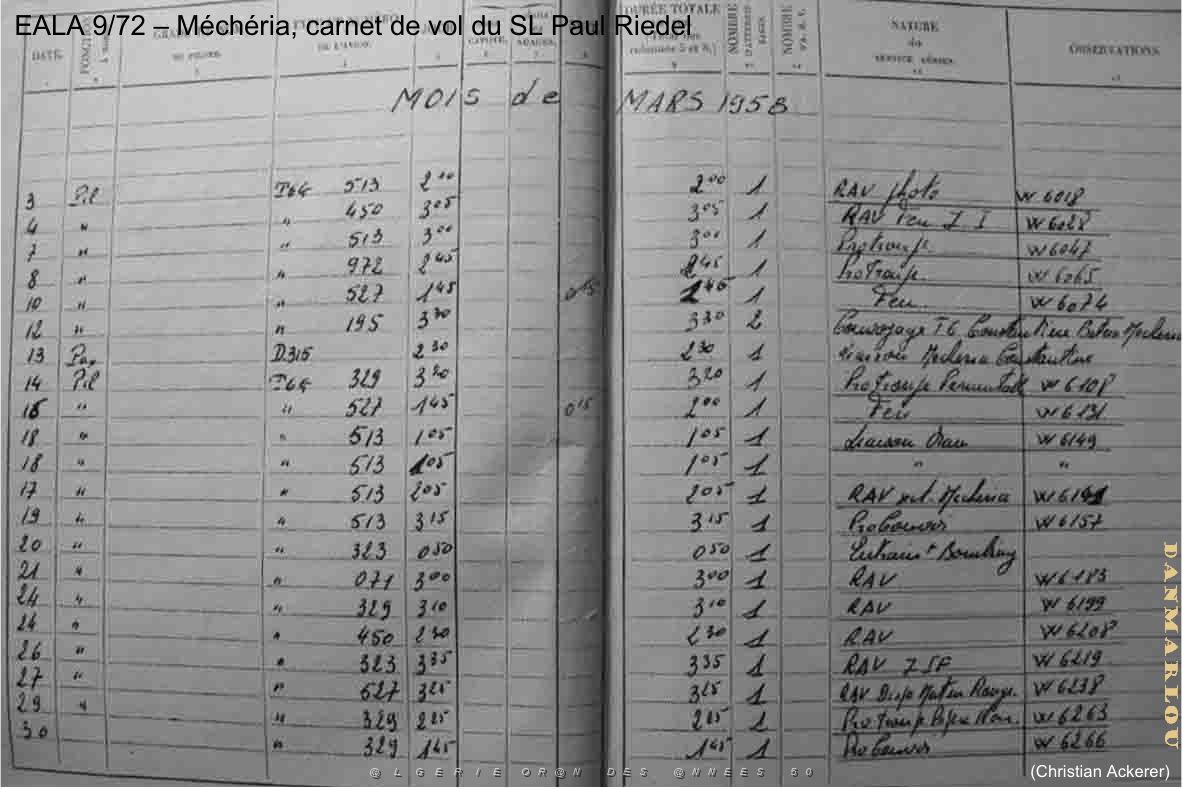 EALA 9/72 – Méchéria, carnet de vol du SL Paul Riedel
DATE. DU PILOTE. DE L'AVION. DURÉE TOTALE colonnes 5 et 8.) NOMBRE NOMBRE NATURE du SERVICE AÉRIEN. OBSERVATIONS.
MOIS de MARS 1958
3 Pil T6G 513 2 00 2 00 1 RAV photo W 6018
4 " " 450 3 05 3 05 1 RAV Feu Z I W 6028
7 " " 513 3 00 3 00 1 Protroup. W 6047
8 " " 972 2 45 2 45 1 ProTroup. W 6065
10 " " 527 1 45 0 15 2 1 Feu W 6074
12 " " 195 3 30 3 30 2 Convoyage T6
13 Pax D.315 2 30 2 30 1 Liaison Mecheria Constantine
14 Pil T6G 329 3 20 3 20 1 Protroup W 6108
" " 527 1 45 0 15 2 00 1 Feu W 6131
18 " " 513 1 05 1 05 1 Liaison Oran W 6149
18 " " 513 1 05 1 05 1 " "
17 " " 513 2 05 2 05 1 RAV Mecheria
19 " " 513 3 15 3 15 1 ProConvoi W 6157
20 " " 323 0 50 0 50 1 Entrain t Bombing
21 " " 071 3 00 3 00 1 RAV W 6183
24 " " 329 3 10 3 10 1 RAV W 6199
24 " " 450 2 30 2 30 1 RAV W 6208
26 " " 323 3 35 3 35 1 RAV W 6219
27 " " 527 3 25 3 25 1 RAV W 6238
29 " " 329 2 25 2 25 1 Protroup W 6263
30 " 329 1 45 1 45 1 ProConvoi W 6266
DANMARLOU
@ L G E R I E O R @ N D E S @ N N E E S 5 0
(Christian Ackerer)